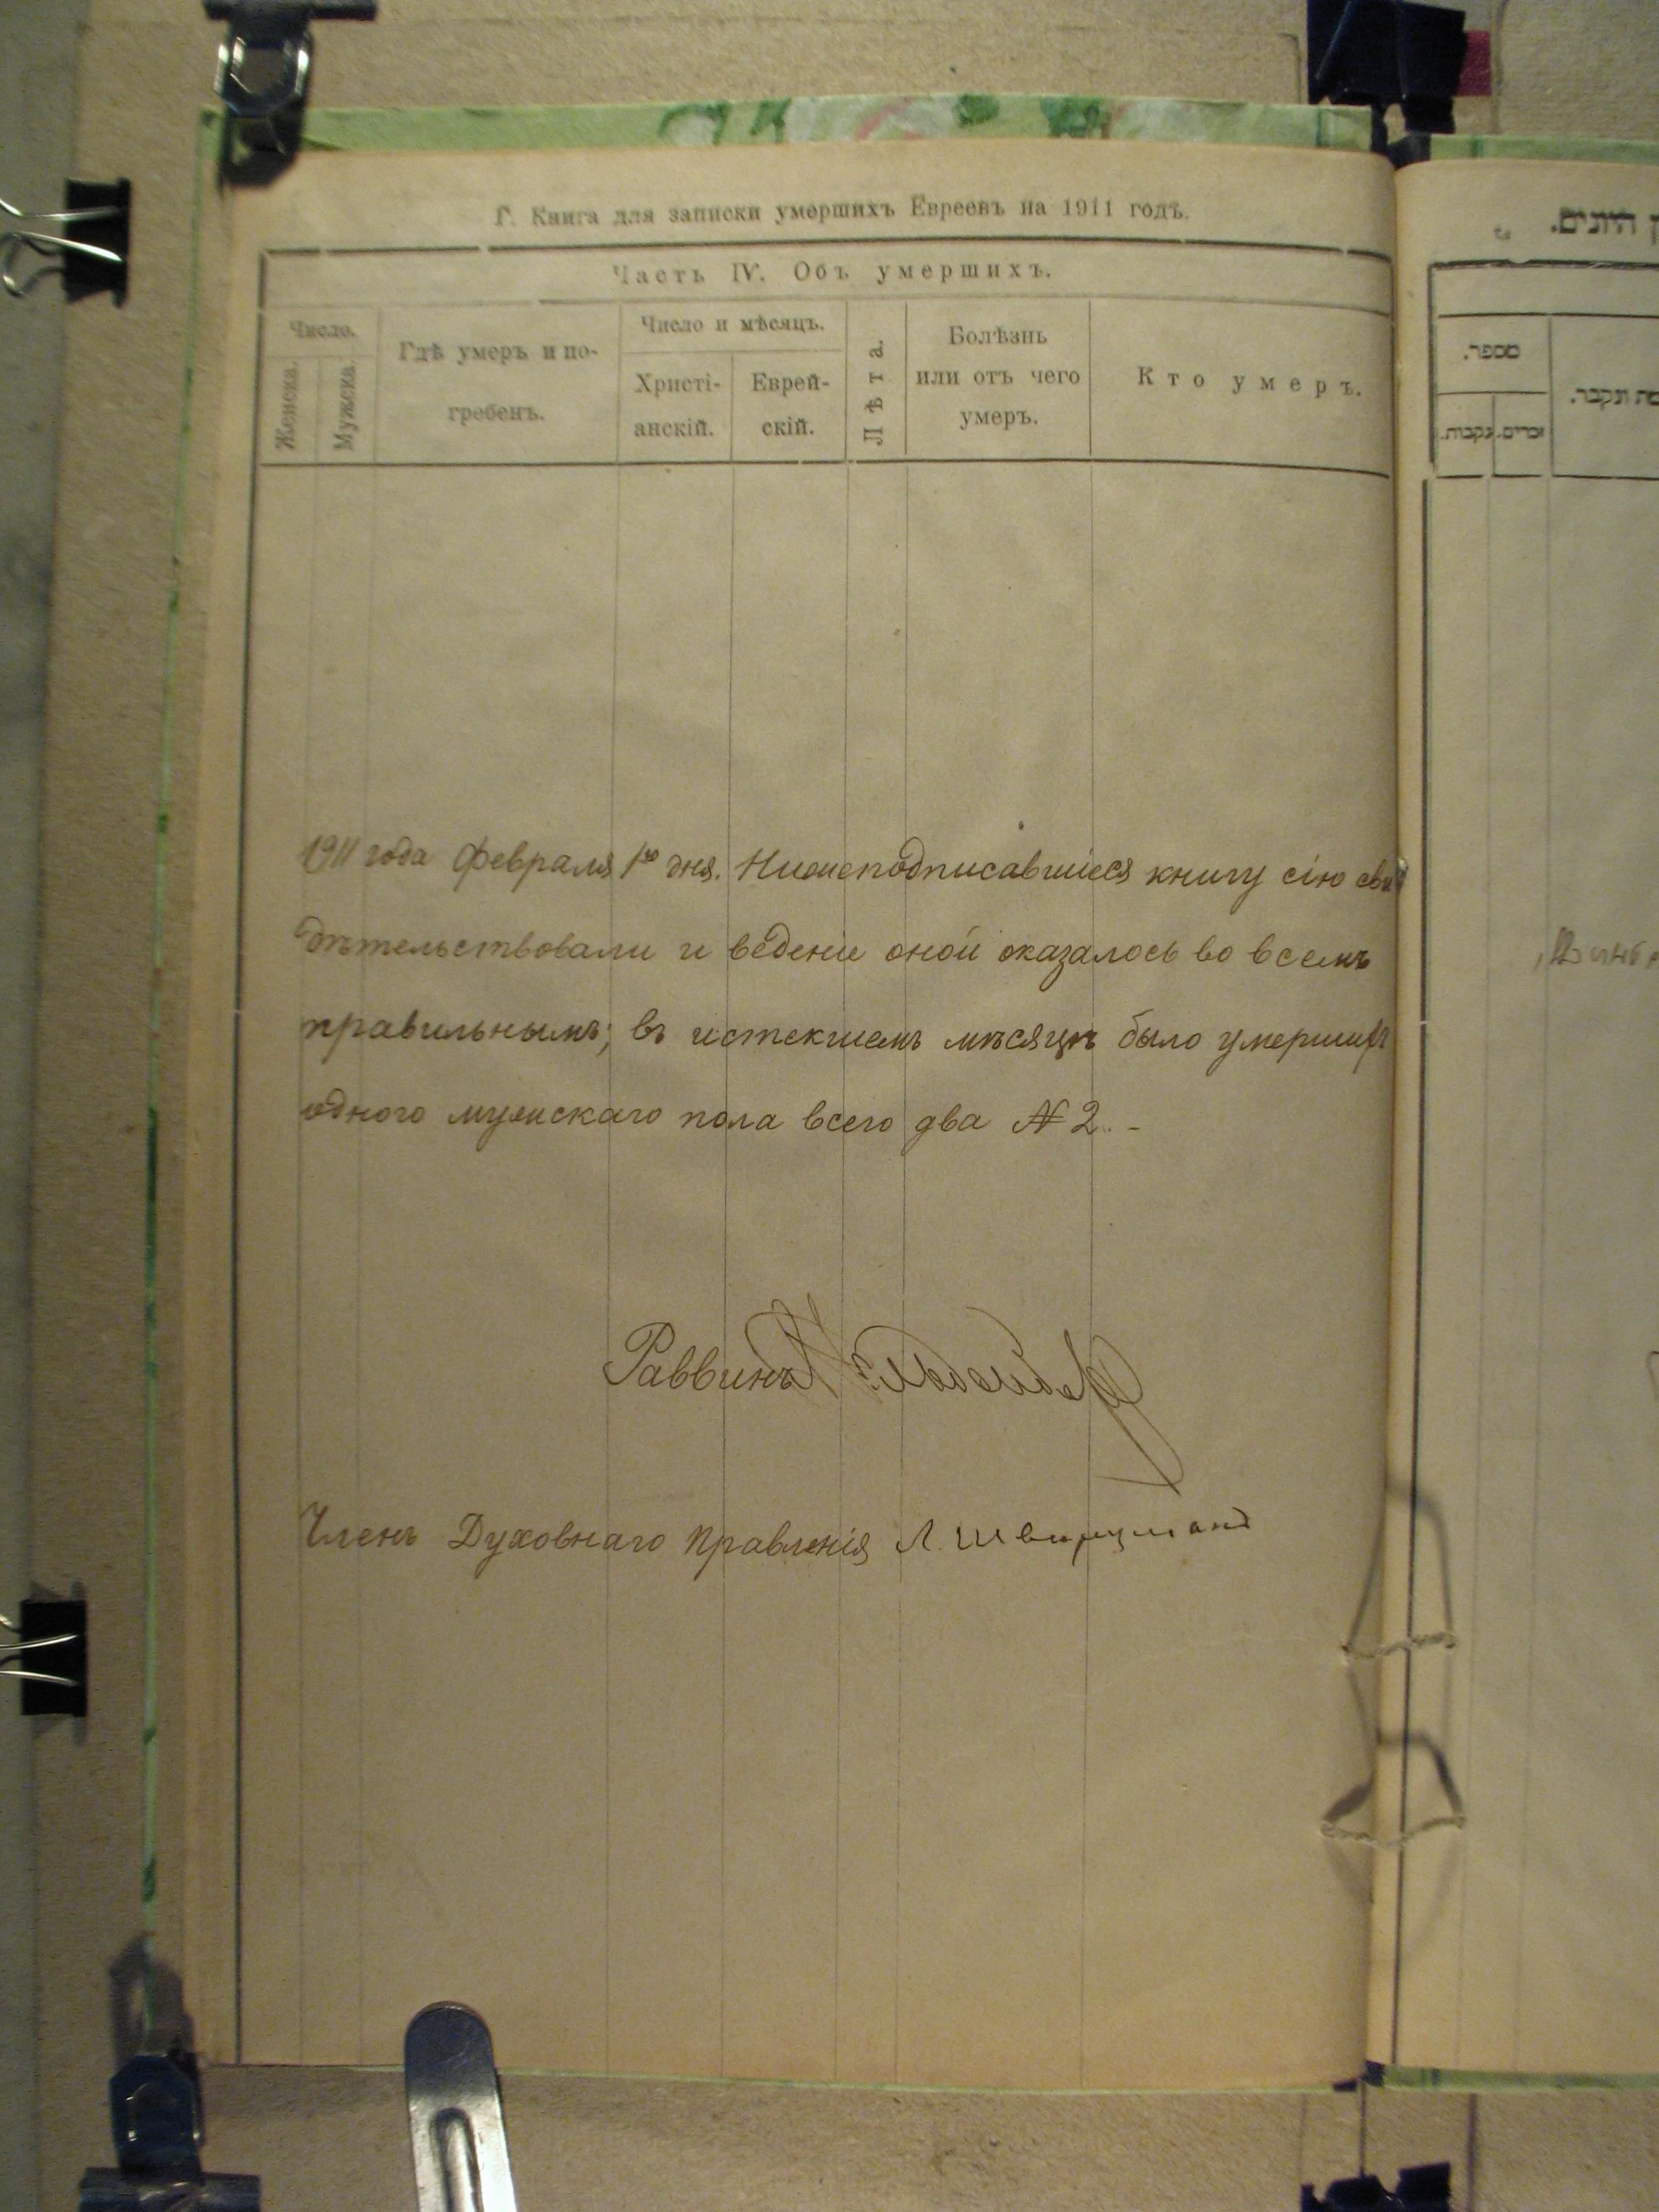 Г. Книга для записки умершихъ Евреевъ на 1911 годъ.
Часть IV. Объ умершихъ.
Число.
Женска.
Мужска.
Гдѣ умеръ и по-
гребенъ.
Число и мѣсяцъ.
Христі-
анскій.
Еврей-
скій.
Лѣта.
Болѣзнь
или отъ чего
умеръ.
Кто умеръ.
1911 года Февраля 1го дня. Нижеподписавшіеся книгу сію сви
дѣтельствовали и веденіе оной оказалось во всемъ
правильнымъ; въ истекшемъ мѣсяцѣ было умершихъ
одного мужскаго пола всего два № 2. -
Раввинъ
Членъ Духовнаго Правленія Л.
מספר.
זכרים.
נקבות.